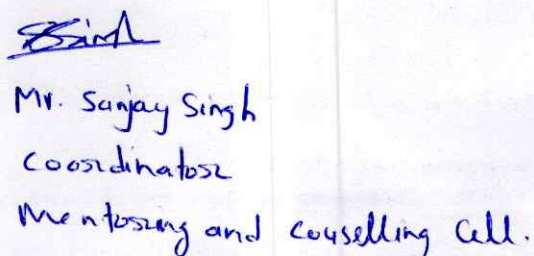 SSingh
Mr. Sanjay Singh
Coordinator
Mentoring and couselling Cell.